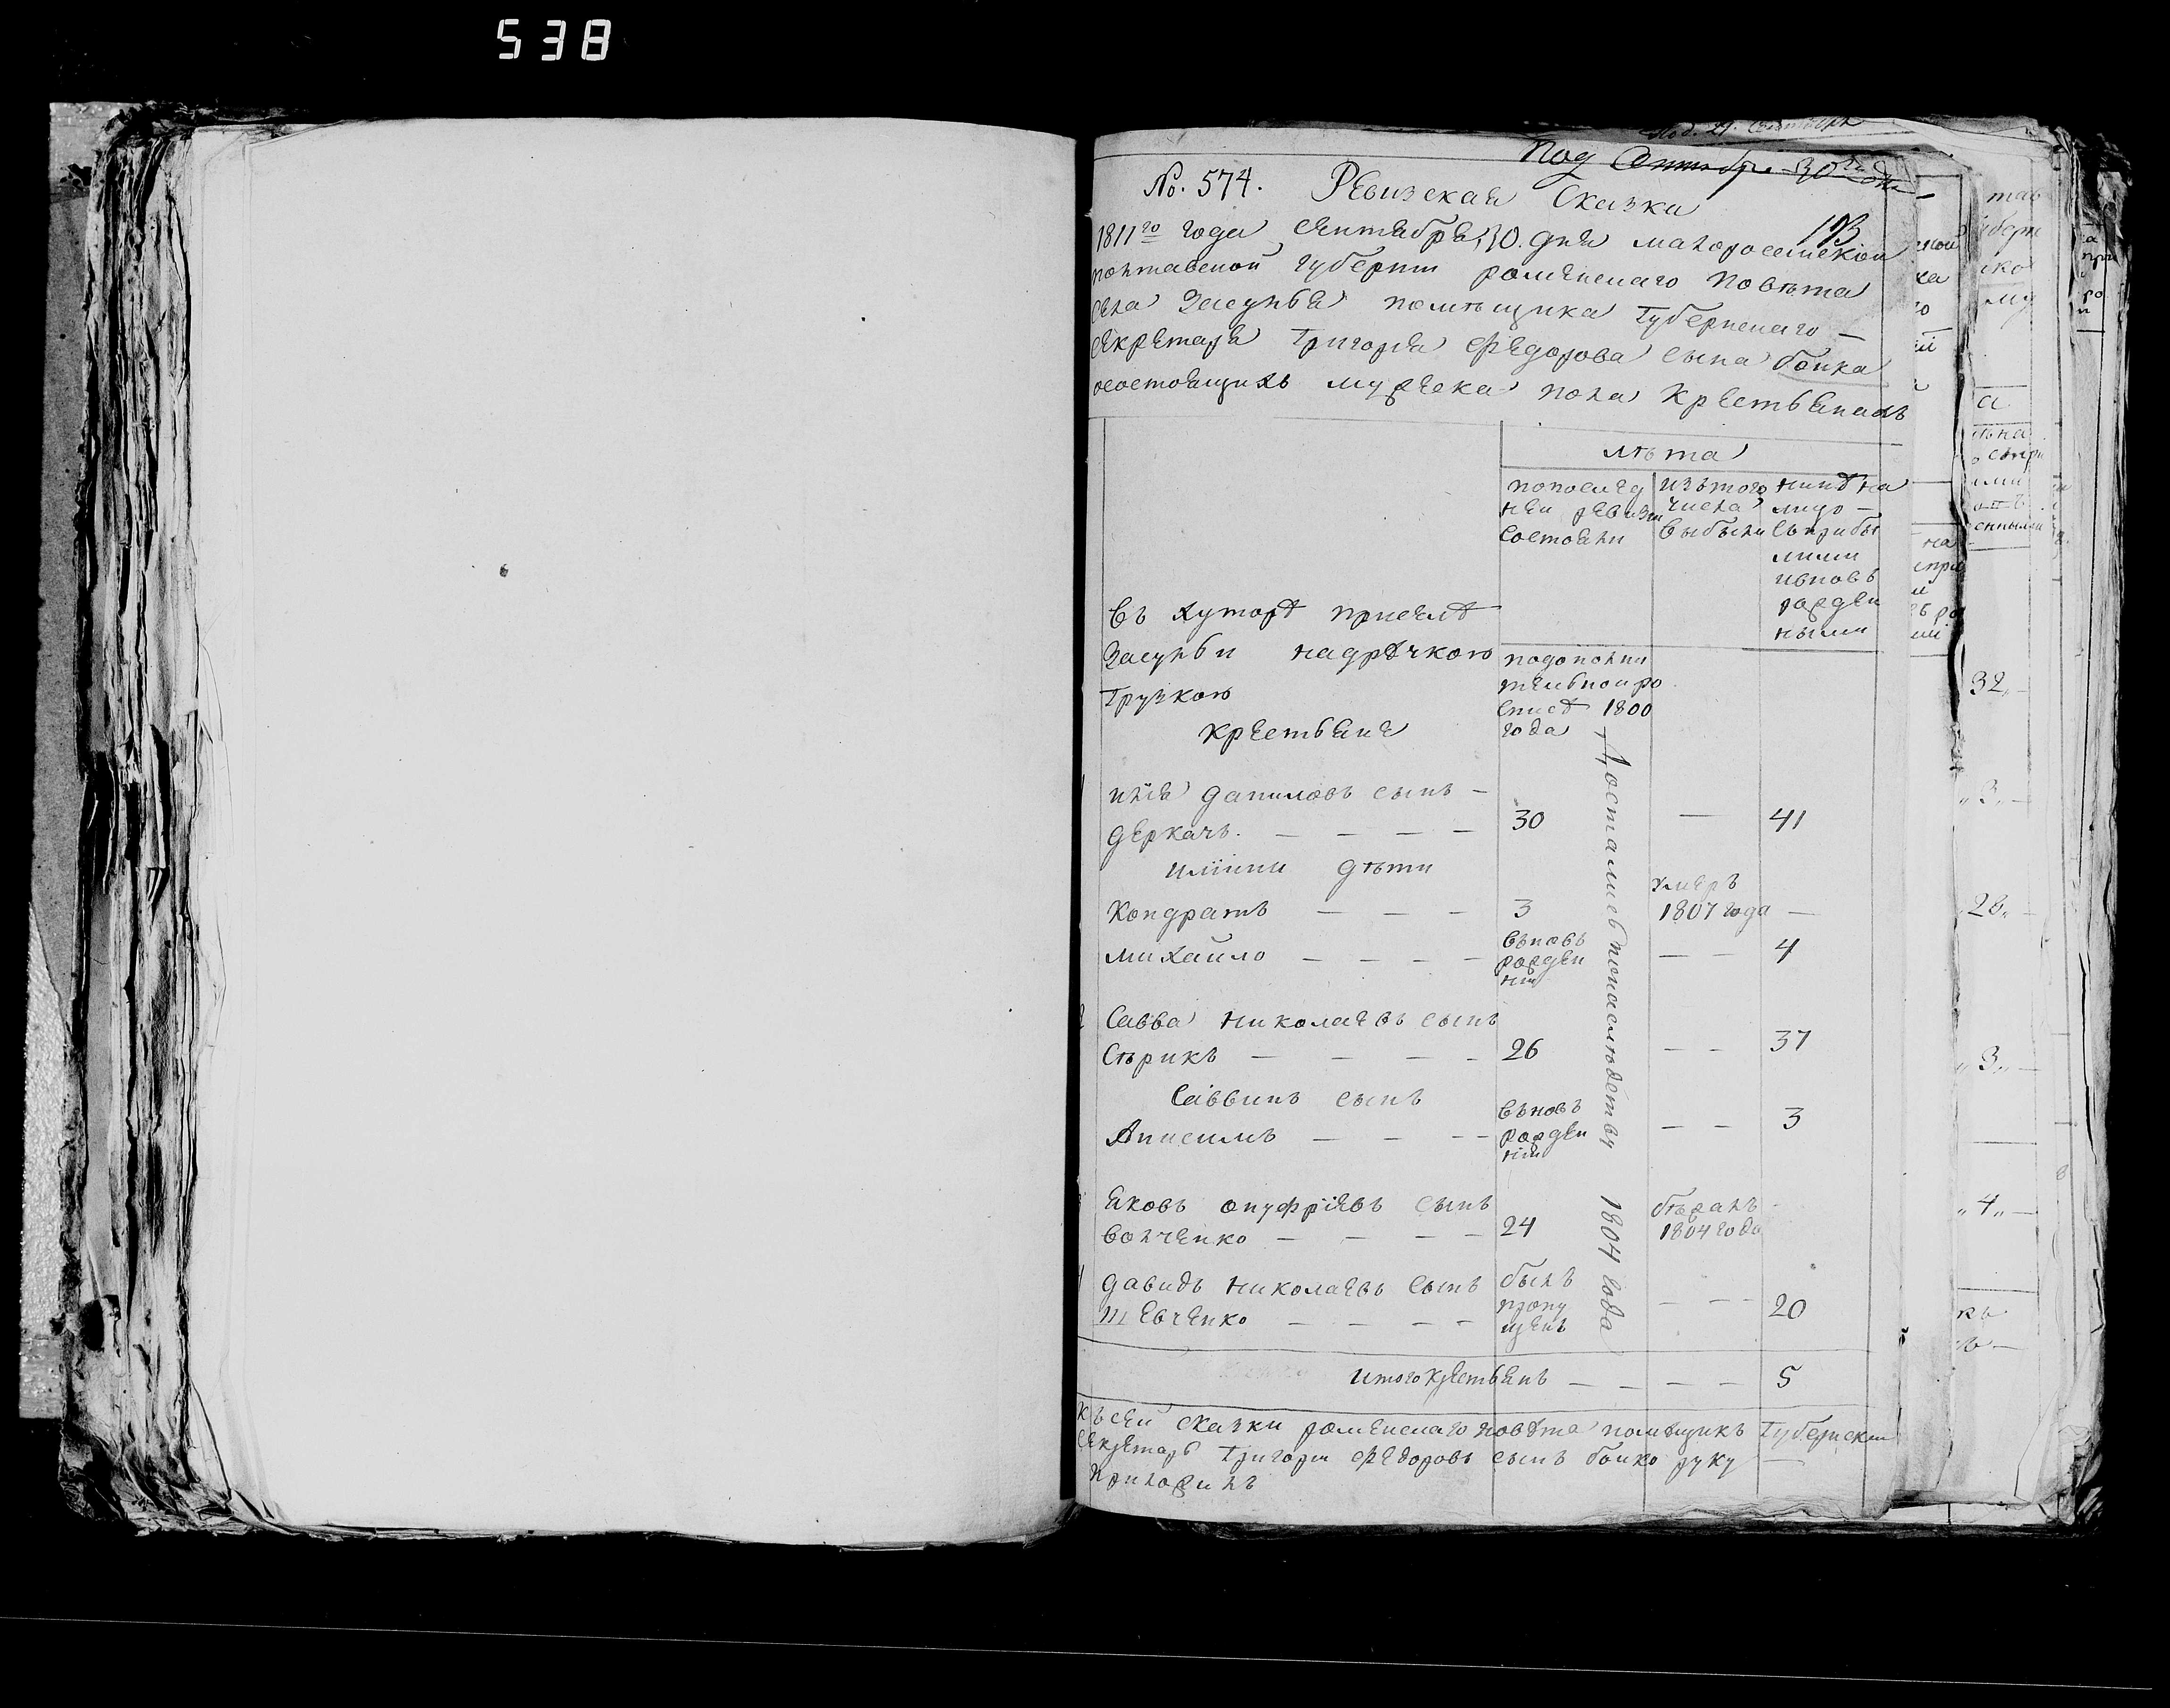 538
Под. 29. Сентября
Под Сентябр. 30го дня
No. 574. Ревизская Сказка
193
1811го года сентебре, 30. дня малоросеискои
полтавскои губернии роменского повѣта
села Засулье помѣщика Губернского —
секретаре Григорие Федорова сына боика
осостоещихъ мужеска пола крестьенахъ
лѣта
попослед
неи ревизи
состоели
изътого
числа
выбыли
нинѣ на
лицо —
съприбы
лими
ивновь
рожден
ными
въ хуторѣ приселѣ
Засульи надрѣчкою
Грузкою
крестьене
подополни
тельнои ро
списѣ 1800
года
Досталисьпонаследству 1804 года
илie даниловъ сынъ —
деркачъ. — — — — 30 — 41
илiини дѣти
Кондратъ — — — 3 умеръ 1807 года —
михаило — — — — вьновь рожден нiи — — 4
2 Савва николаевъ сынъ
Сѣрикъ — — — — 26 — — 37
Саввинъ сынъ
Анисимъ — — — — вьновь рожден нiи — — 3
ековъ онуфрiевъ сынъ
волченко — — — — 24 бѣжалъ 1804 года
4 давидъ николаевъ сынъ
шевченко — — — — былъ пропу щенъ — — 20
итого крестьенъ — — — — 5
късеи сказки роменского повѣта помѣщикъ Губернски
секретарь Григори Федоровъ сынъ боико руку —
приложилъ
32,, —
,, 3,, —
28,, —
,, 3,, —
,, 4,, —